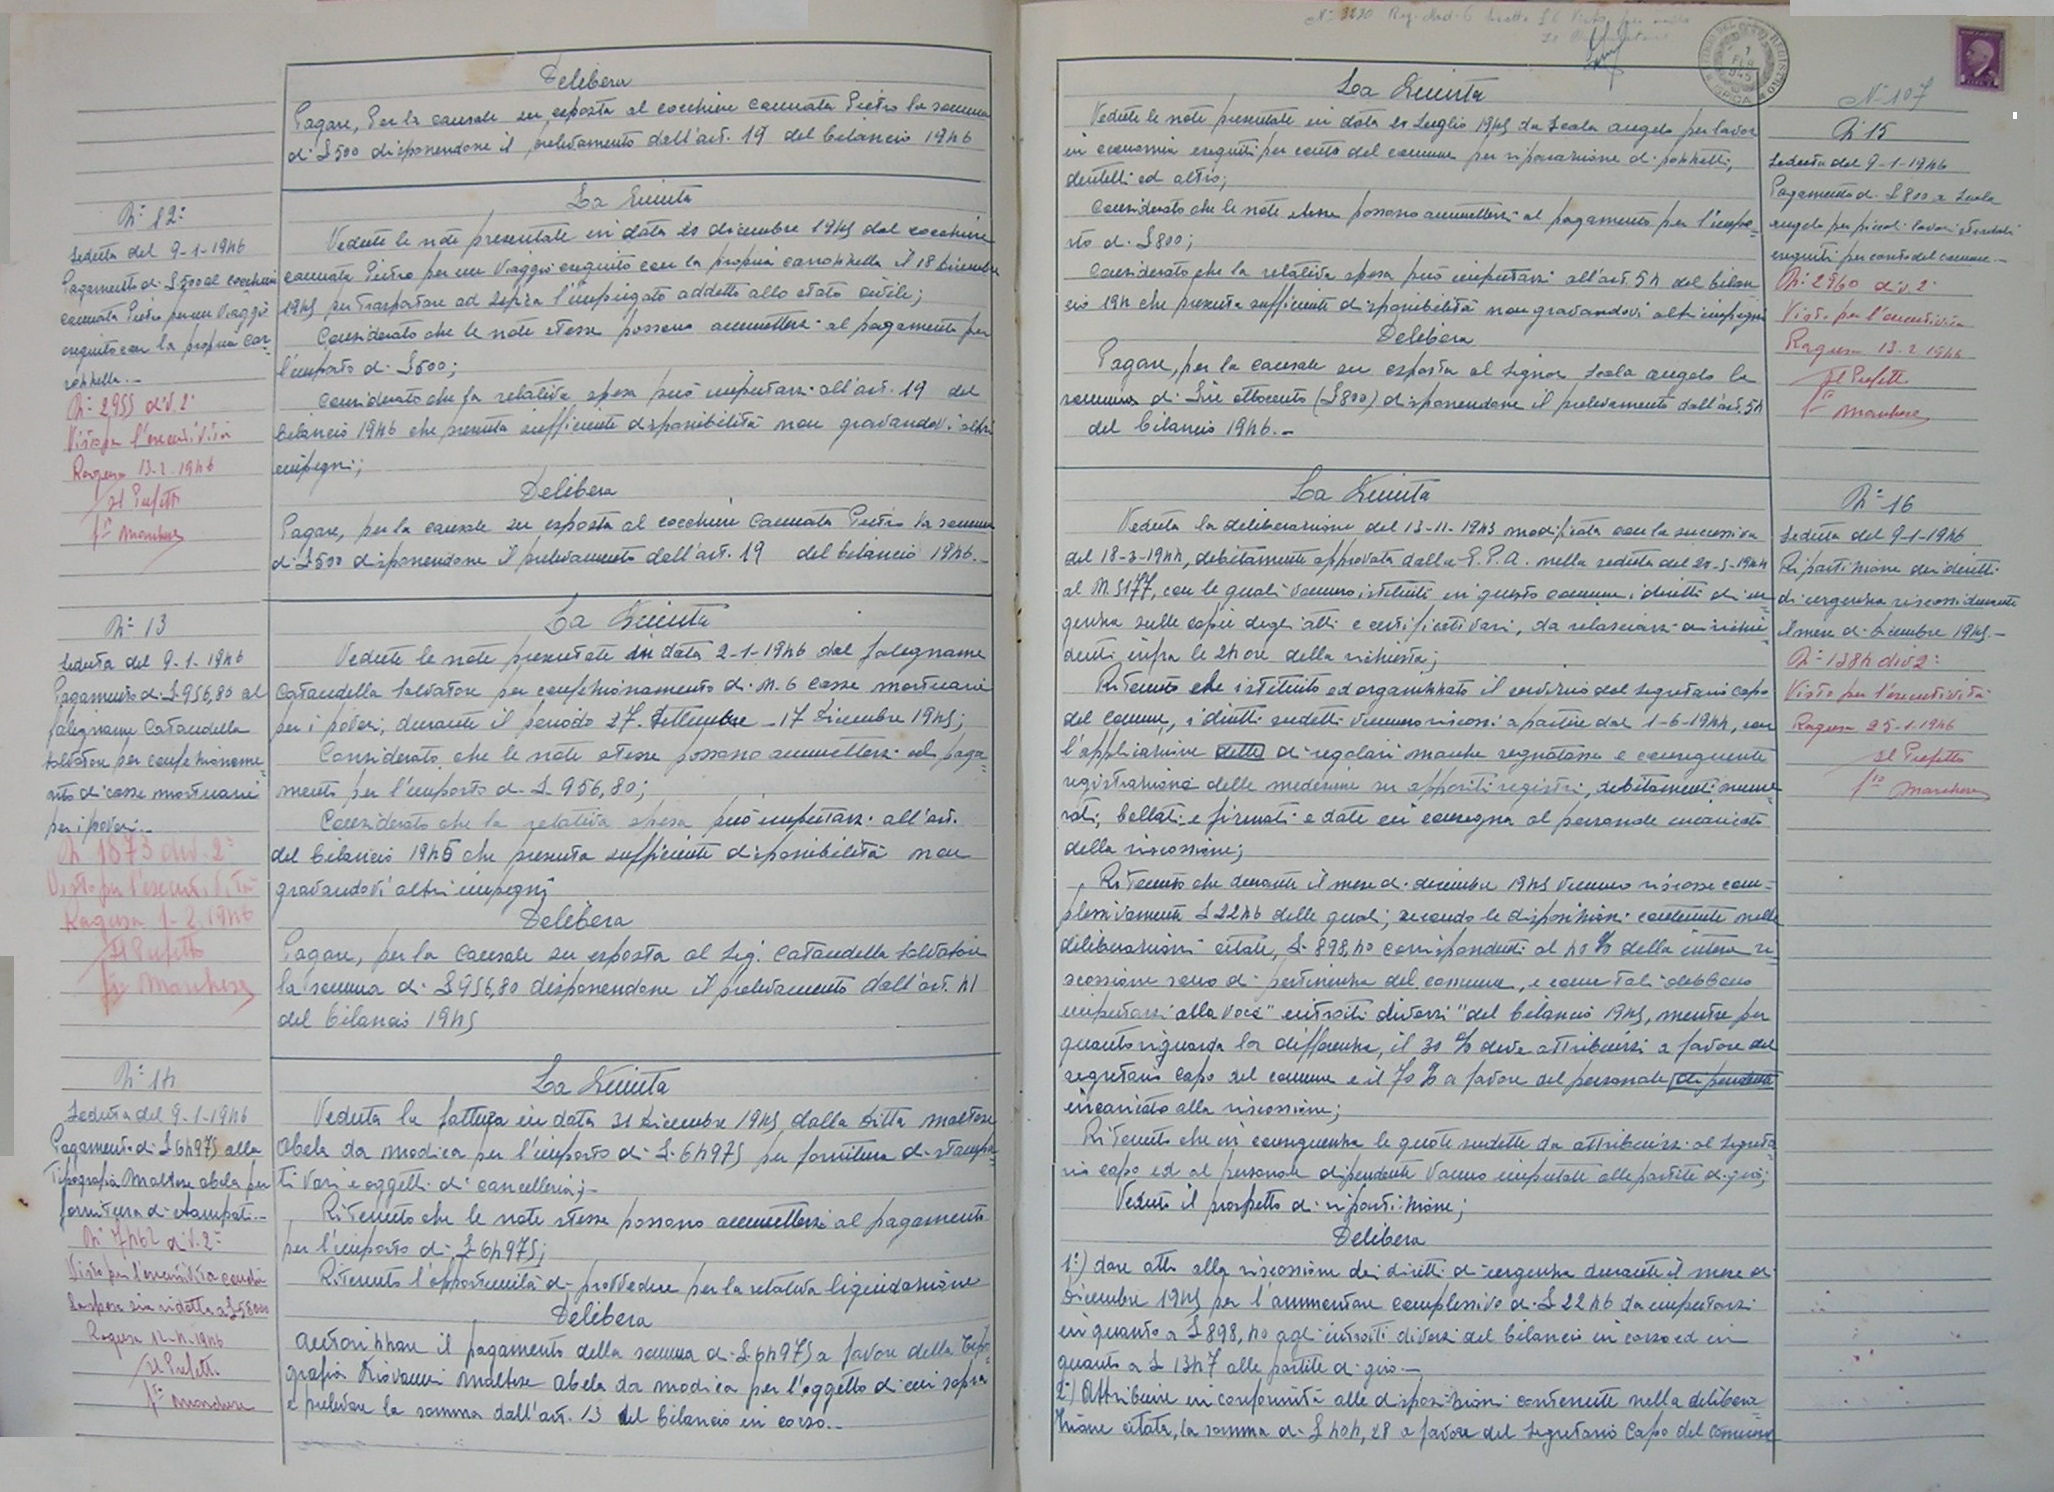 Delibera
Pagare, Per la causale su esposta al cocchiere Cannata Pietro la somma
di £ 500 disponendone il prelevamento dall'art. 19 del bilancio 1946
N° 12:
Seduta del 9-1-1946
Pagamento di £ 500 al cocchiere
Cannata Pietro per un viaggio
eseguito con la propria car=
rozzella.-
N° 2955 div. 2ª
Visto per l'esecutività
Ragusa 13-2-1946
Il Prefetto
Fto Marchese
La Giunta
Vedute le note presentate in data 20 dicembre 1945 dal cocchiere
Cannata Pietro per un viaggio eseguito con la propria carrozzella il 18 Dicembre
1945 per trasportare ad Ispica l'impiegato addetto allo stato civile;
Considerato che le note stesse possono ammettersi al pagamento per
l'importo di £ 500;
Considerato che la relativa spesa può imputarsi all'art. 19 del
bilancio 1946 che presenta sufficiente disponibilità non gravandovi altri
impegni;
Delibera
Pagare, per la causale su esposta al cocchiere Cannata Pietro la somma
di £ 500 disponendone il prelevamento dall'art. 19 del bilancio 1946.-
N° 13
Seduta del 9-1-1946
Pagamento di £ 956,80 al
falegname Cataudella
Salvatore per confezioname=
nto di casse mortuarie
per i poveri.-
N 1873 div. 2ª
Visto per l'esecutività
Ragusa 1-2-1946
Il Prefetto
Fto Marchese
La Giunta
Vedute le note presentate in data 2-1-1946 dal falegname
Cataudella Salvatore per confezionamento di N. 6 casse mortuarie
per i poveri, durante il periodo 27 Settembre - 17 Dicembre 1945;
Considerato che le note stesse possono ammettersi al paga=
mento per l'importo di £ 956,80;
Considerato che la relativa spesa può imputarsi all'art.
del bilancio 1945 che presenta sufficiente disponibilità non
gravandovi altri impegni
Delibera
Pagare, per la causale su esposta al Sig. Cataudella Salvatore
la somma di £ 956,80 disponendone il prelevamento dall'art. 41
del bilancio 1945
N° 14
Seduta del 9-1-1946
Pagamento di £ 64975 alla
Tipografia Maltese Abela per
fornitura di stampati.-
N° 7462 div. 2ª
Visto per l'esecutività
la spesa sia ridotta a £ 58000
Ragusa 12-4-1946
Il Prefetto
Fto Marchese
La Giunta
Veduta la fattura in data 31 Dicembre 1945 dalla Ditta Maltese
Abela da Modica per l'importo di £ 64975 per fornitura di stampa=
ti vari e oggetti di cancelleria;-
Ritenuto che le note stesse possono ammettersi al pagamento
per l'importo di £ 64975;
Ritenuto l'opportunità di provvedere per la relativa liquidazione
Delibera
Autorizzare il pagamento della somma di £ 64975 a favore della Tipo=
grafia Giovanni Maltese Abela da Modica per l'oggetto di cui sopra
e prelevare la somma dall'art. 13 del bilancio in corso.-
N° 3220
N° 107
La Giunta
Vedute le note presentate in data 20 Luglio 1945 da Scala Angelo per lavori
in economia eseguiti per conto del comune per riparazione di pozzetti,
dentelli ed altro;
Considerato che le note stesse possono ammettersi al pagamento per l'impo=
rto di £ 800;
Considerato che la relativa spesa può imputarsi all'art. 54 del bilan
cio 194 che presenta sufficiente disponibilità non gravandovi altri impegni
Delibera
Pagare, per la causale su esposta al Signor Scala Angelo la
somma di Lire ottocento (£ 800) disponendone il prelevamento dall'art. 54
del bilancio 1946.-
N° 15
Seduta del 9-1-1946
Pagamento di £ 800 a Scala
Angelo per piccoli lavori stradali
eseguiti per conto del comune.-
N° 2960 div. 2ª
Visto per l'esecutività
Ragusa 13-2-1946
Il Prefetto
Fto Marchese
La Giunta
Veduta la deliberazione del 13-11-1943 modificata con la successiva
del 18-3-1944, debitamente approvata dalla G.P.A. nella seduta del 20-5-1944
al N. 5177, con le quali vennero istituiti in questo comune i diritti di ur=
genza sulle copie degli atti e certificati vari, da rilasciarsi ai richie=
denti infra le 24 ore della richiesta;
Ritenuto che istituito ed organizzato il servizio dal Segretario Capo
del Comune, i diritti sudetti vennero riscossi a partire dal 1-6-1944, con
l'applicazione delle di regolari marche segnatasse e conseguente
registrazione delle medesime su appositi registri, debitamente nume=
rati, bollati e firmati e date in consegna al personale incaricato
della riscossione;
Ritenuto che durante il mese di dicembre 1945 vennero riscosse com=
plessivamente £ 2246 delle quali, secondo le disposizioni contenute nelle
deliberazioni citate, £ 898,40 corrispondenti al 40 % della intera ri=
scossione sono di pertinenza del comune, e come tali debbono
imputarsi alla voce "introiti diversi" del bilancio 1945, mentre per
quanto riguarda la differenza, il 30 % deve attribuirsi a favore del
segretario capo del comune e il 70 % a favore del personale dipendente
incaricato alla riscossione;
Ritenuto che in conseguenza le quote sudette da attribuirsi al Segreta=
rio capo ed al personale dipendente vanno imputate alle partite di giro;
Veduto il prospetto di ripartizione;
Delibera
1°) dare atto alla riscossione dei diritti di urgenza durante il mese di
Dicembre 1945 per l'ammontare complessivo di £ 2246 da imputarsi
in quanto a £ 898,40 agli introiti diversi del bilancio in corso ed in
quanto a £ 1347 alle partite di giro.-
2°) Attribuire in conformità alle disposizioni contenute nella delibera=
zione citata, la somma di £ 404,28 a favore del Segretario Capo del comune
N° 16
Seduta del 9-1-1946
Ripartizione dei diritti
di urgenza riscossi durante
il mese di Dicembre 1945.-
N° 1384 div 2ª
Visto per l'esecutività
Ragusa 25-1-1946
Il Prefetto
Fto Marchese